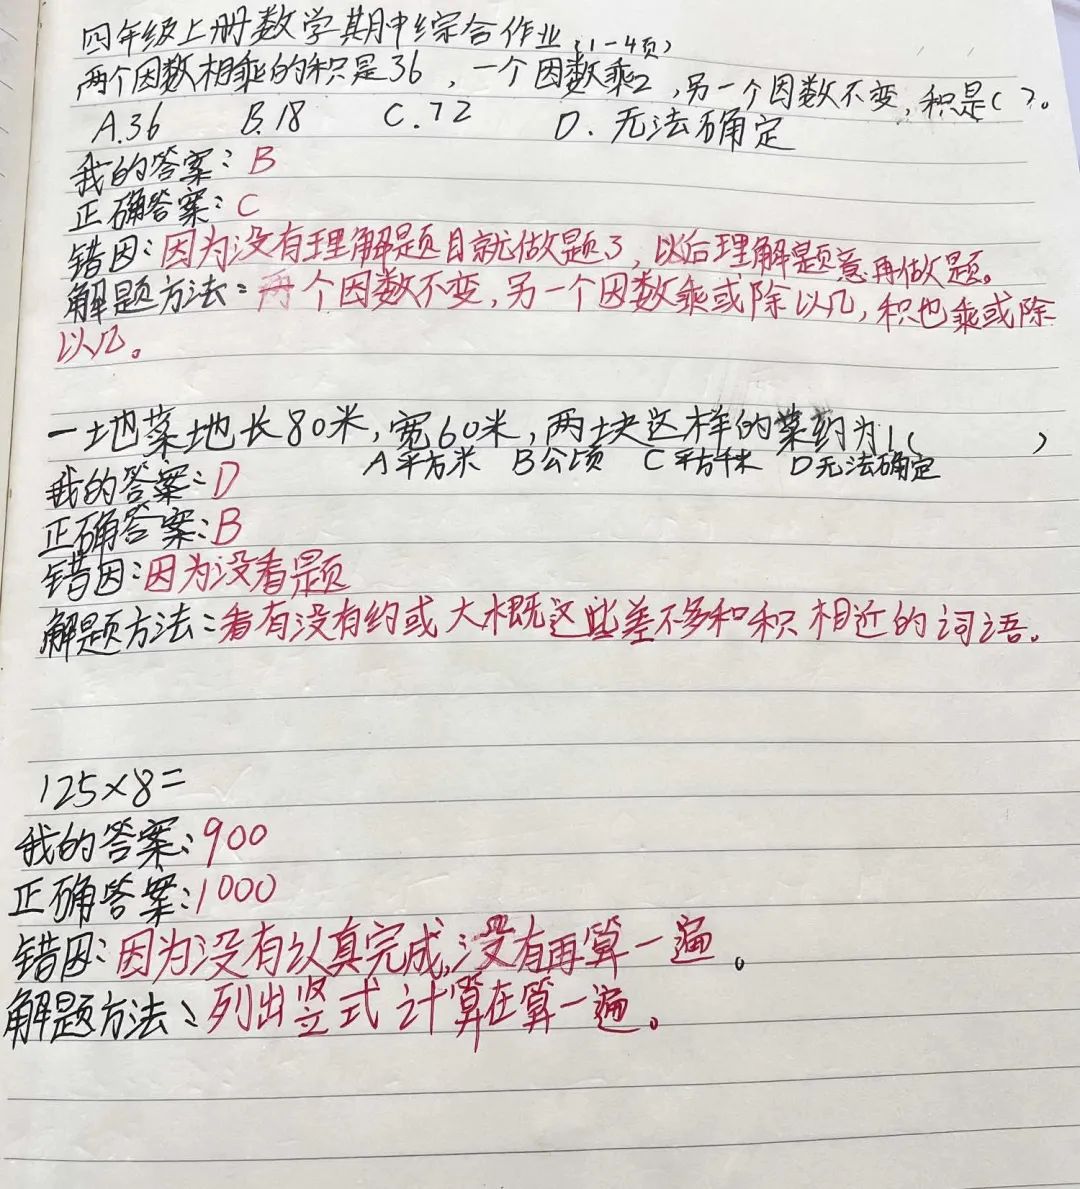 四年级上册数学期中综合作业(1-4页)
两个因数相乘的积是36，一个因数乘2，另一个因数不变，积是( )。
A.36 B.18 C.72 D.无法确定
我的答案：B
正确答案：C
错因：因为没有理解题目就做题了，以后理解题意再做题。
解题方法：两个因数不变，另一个因数乘或除以几，积也乘或除
以几。
一地菜地长80米，宽60米，两块这样的菜约为1( )
A平方米 B公顷 C平方千米 D无法确定
我的答案：D
正确答案：B
错因：因为没看题
解题方法：看有没有约或大概这些差不多和积相近的词语。
125×8=
我的答案：900
正确答案：1000
错因：因为没有认真完成，没有再算一遍。
解题方法：列出竖式计算在算一遍。